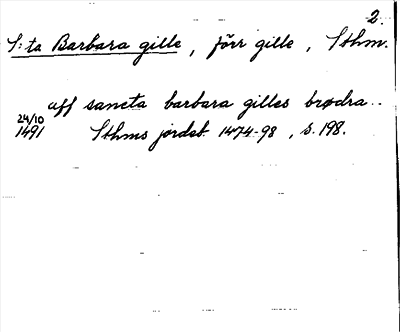 2.
S:ta Barbara gille, förr gille, Sthm.
aff sancta barbara gilles brødra..
24/10
1491 Sthms jordeb. 1474-98, s. 198.